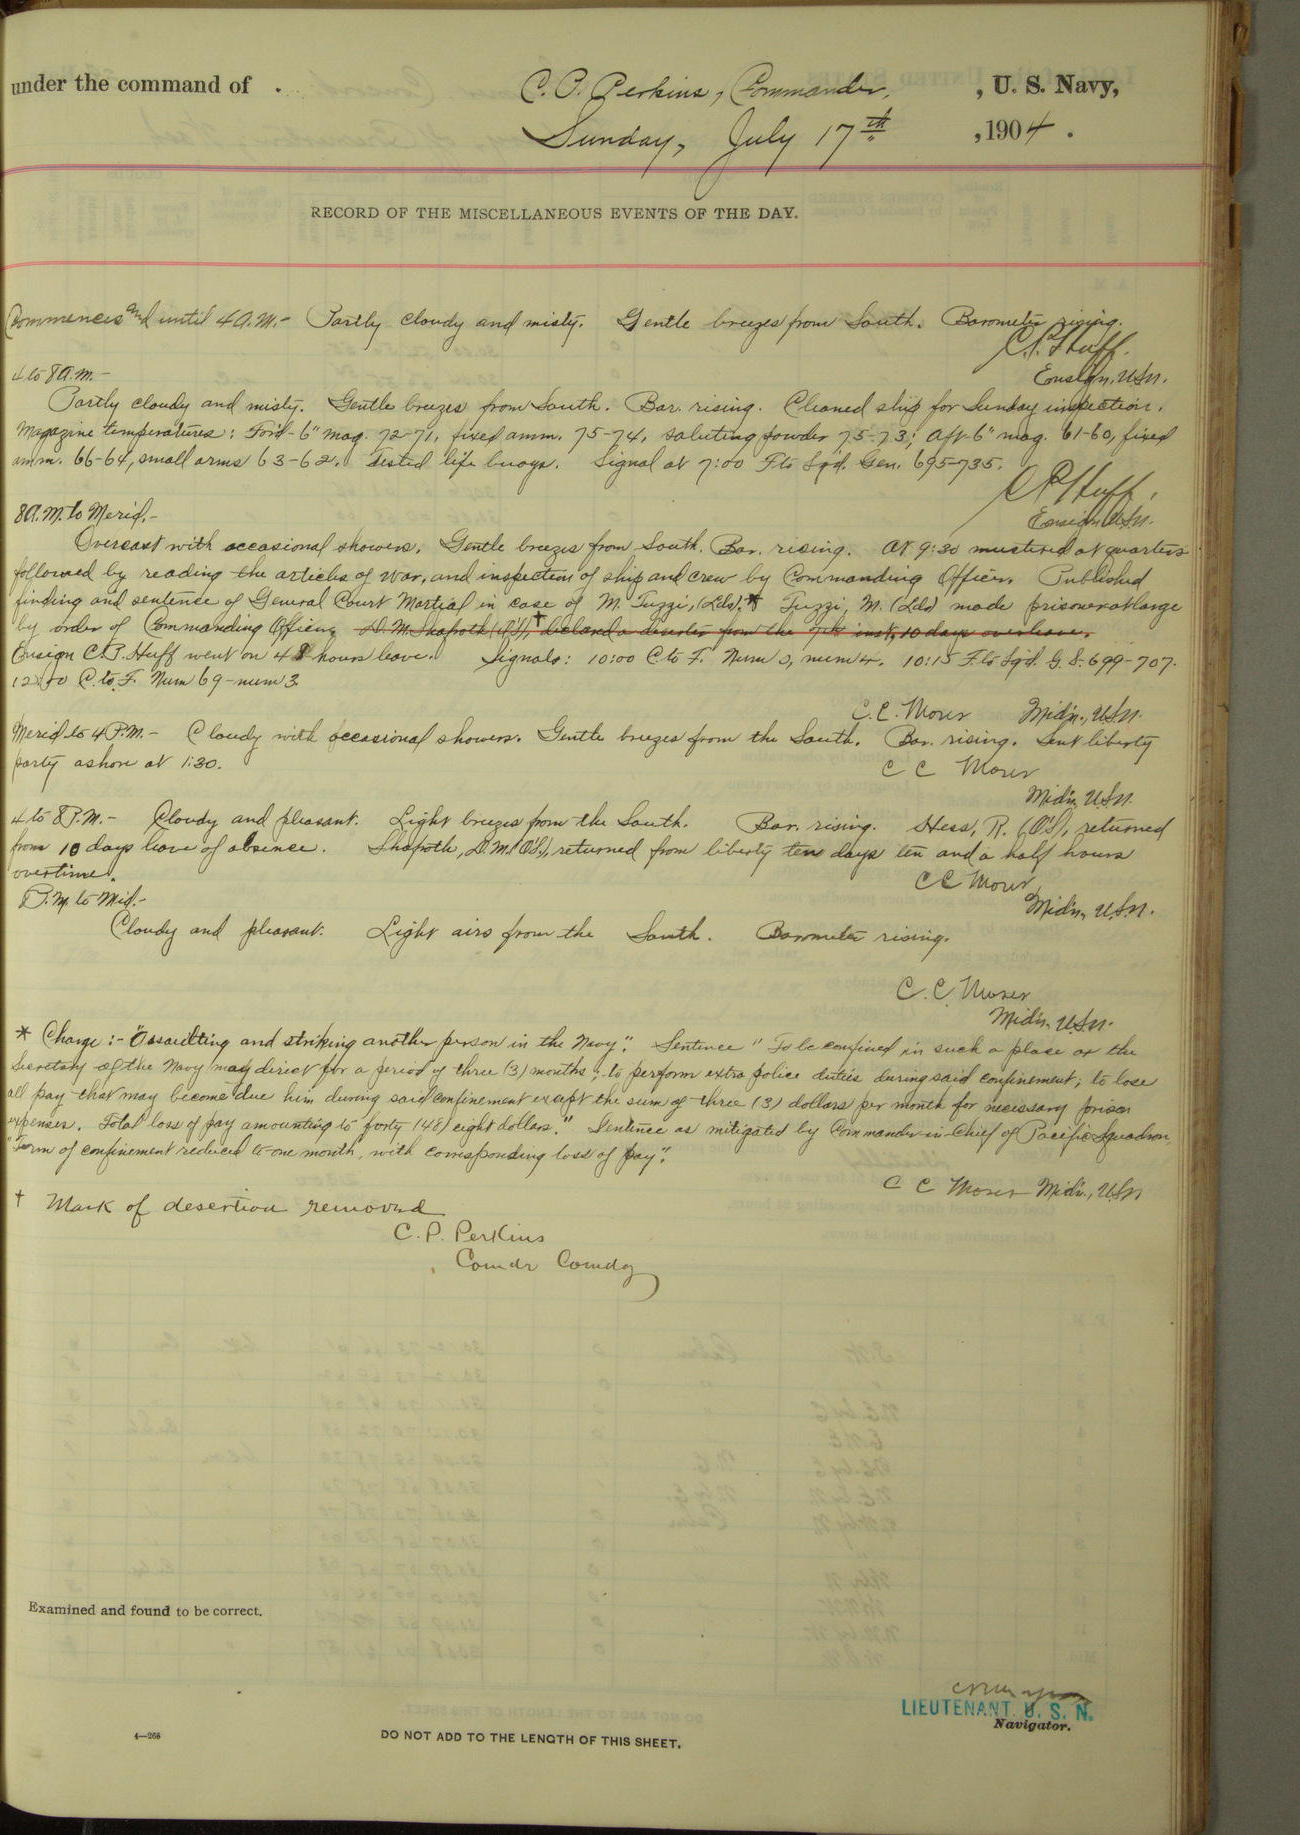 under the command of . C. P. Perkins, Commander, , U. S. Navy,
Sunday, July 17th , 1904 .
RECORD OF THE MISCELLANEOUS EVENTS OF THE DAY.
Commences and until 4 A.M.- Partly cloudy and misty. Gentle breezes from South. Barometer rising.
C.P. Huff.
Ensign, U.S.N.
4 to 8 A.M.-
Partly cloudy and misty. Gentle breezes from South. Bar. rising. Cleaned ship for Sunday inspection.
Magazine temperatures: For'd-6" mag. 72-71, fixed amm. 75-74, saluting powder 75-73; Aft-6" mag. 61-60, fixed
amm. 66-64, small arms 63-62. Tested life buoys. Signal at 7:00 F to Sq'd. Gen. 695-735.
C P Huff,
Ensign U.S.N.
8 A.M. to Merid.-
Overcast with occasional showers. Gentle breezes from South. Bar. rising. At 9:30 mustered at quarters
followed by reading the articles of war, and inspection of ship and crew by Commanding Officer. Published
finding and sentence of General Court Martial in case of M. Tuzzi, (Lds).* Tuzzi, M. (Lds) made prisoner at large
by order of Commanding Officer. D. M. Shafroth (O.S.),† declared a deserter from the 7th inst, 10 days overleave.
Ensign C.P. Huff went on 48 hours leave. Signals: 10:00 C to F. Num 0, num 4. 10:15 F. to Sq'd. G.S. 699-707.
12:00 C. to F. Num 69-num 3
C. C. Moser Mid'n., U.S.N.
Merid to 4 P.M.- Cloudy with occasional showers. Gentle breezes from the South. Bar. rising. Sent liberty
party ashore at 1:30.
C C Moser
Mid'n, U.S.N.
4 to 8 P.M.- Cloudy and pleasant. Light breezes from the South. Bar. rising. Hess, R. (O.S), returned
from 10 days leave of absence. Shafroth, D.M. (O.S.), returned from liberty ten days ten and a half hours
overtime.
C C Moser,
Mid'n, U.S.N.
8 P.M. to Mid.-
Cloudy and pleasant. Light airs from the South. Barometer rising.
C. C. Moser
Mid'n. U.S.N.
* Charge:- "Assaulting and striking another person in the Navy". Sentence "To be confined in such a place as the
Secretary of the Navy may direct for a period of three (3) months; to perform extra police duties during said confinement; to lose
all pay that may become due him during said confinement except the sum of three (3) dollars per month for necessary prison
expenses. Total loss of pay amounting to forty (48) eight dollars." Sentence as mitigated by Commander-in-Chief of Pacific Squadron,
"Term of confinement reduced to one month, with corresponding loss of pay".
C C Moser Mid'n., U.S.N
† Mark of desertion removed
C. P. Perkins
Comdr Comdg
Examined and found to be correct.
LIEUTENANT. U. S. N.
Navigator.
4—266
DO NOT ADD TO THE LENGTH OF THIS SHEET.